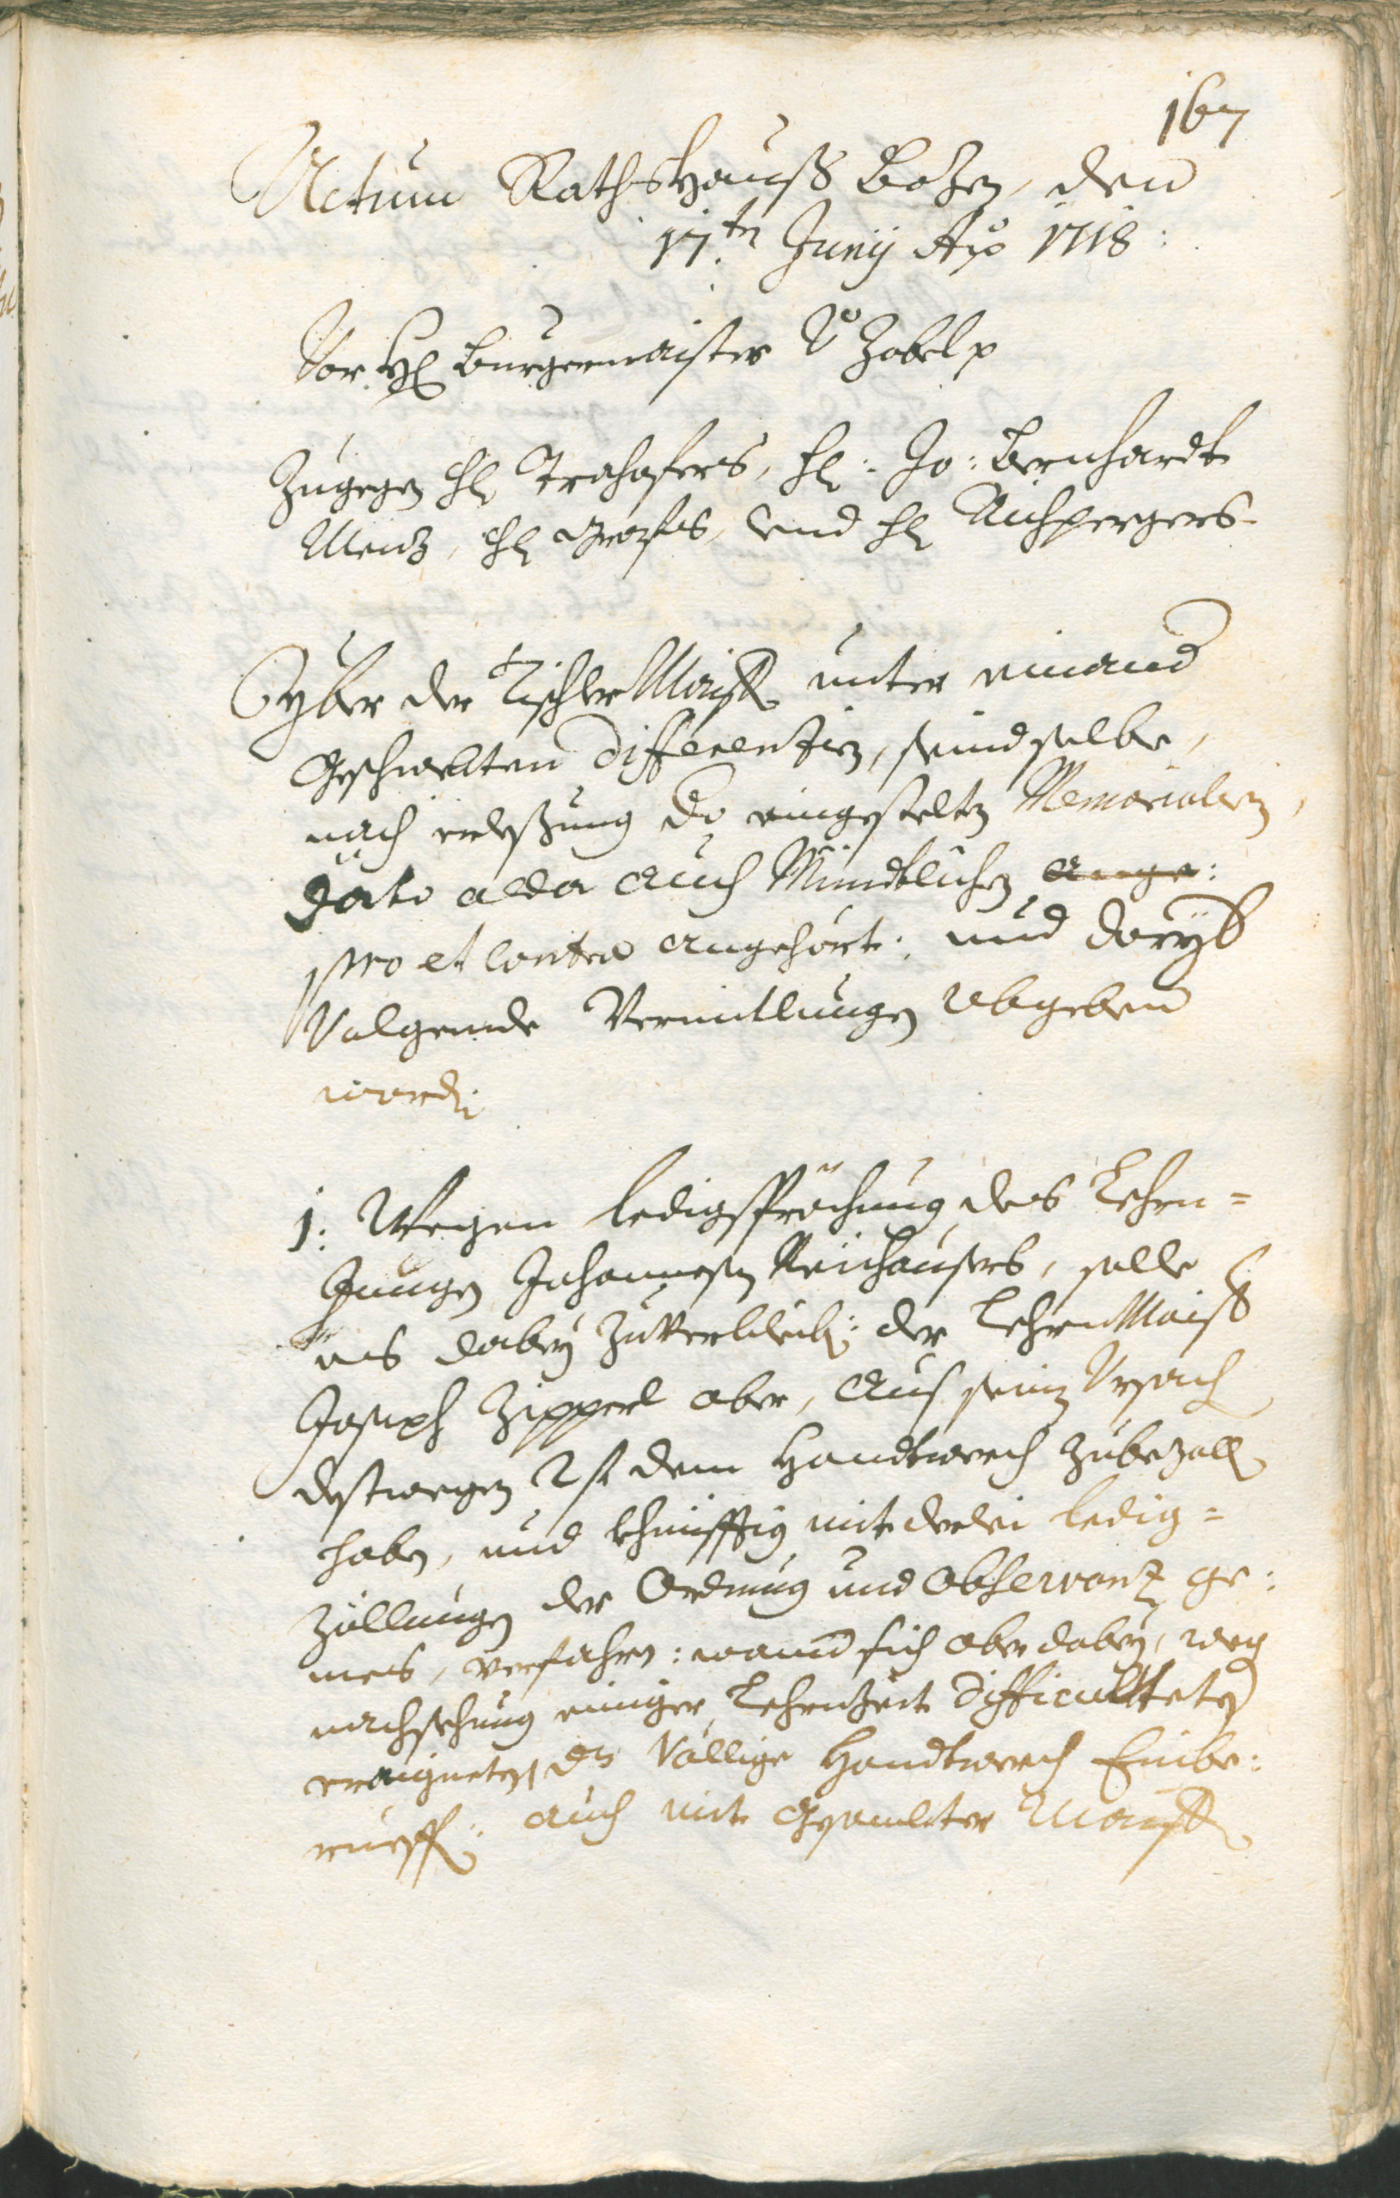 167
Actum Rathshauß Bozen, den
17.ten Junÿ Ao 1718:
Vor Hl Burgermaister Vo Zobel p
Zugegen hl Trahofers, hl: Jo: Bernhardt
Menz, hl Grafs, und hl Aichpergers
Yber der Tischler Maist unter einand
Geschwebten Differentien, seind selbe,
nach verlesßung do eingestelten Memorialien,
Dato alda auch Mündtlichen ange:
pro et contra angehört: und darÿb
Volgende Vermitlungen abgeben
word:
1: Wegen ledigspröchung des Lehrn=
Jungen Johannesen Reichausers, solle
es dabeÿ zuverbleib: der LehrnMaist
Joseph Zipperl aber, aus seiner Ursach
destwegen 2 f dem Handtwerch zubezall
haben, und khünfftig mit derlei ledig=
zöllungen der Ordnung und Observanz ge:
mes, verfahren: wannd sich aber dabeÿ, weg
nachsehung einiger Lehrzeit Difficultteten
eraigneten, das völlige Handtwerch Einbe:
rueff: auch mit Gesambter Maist